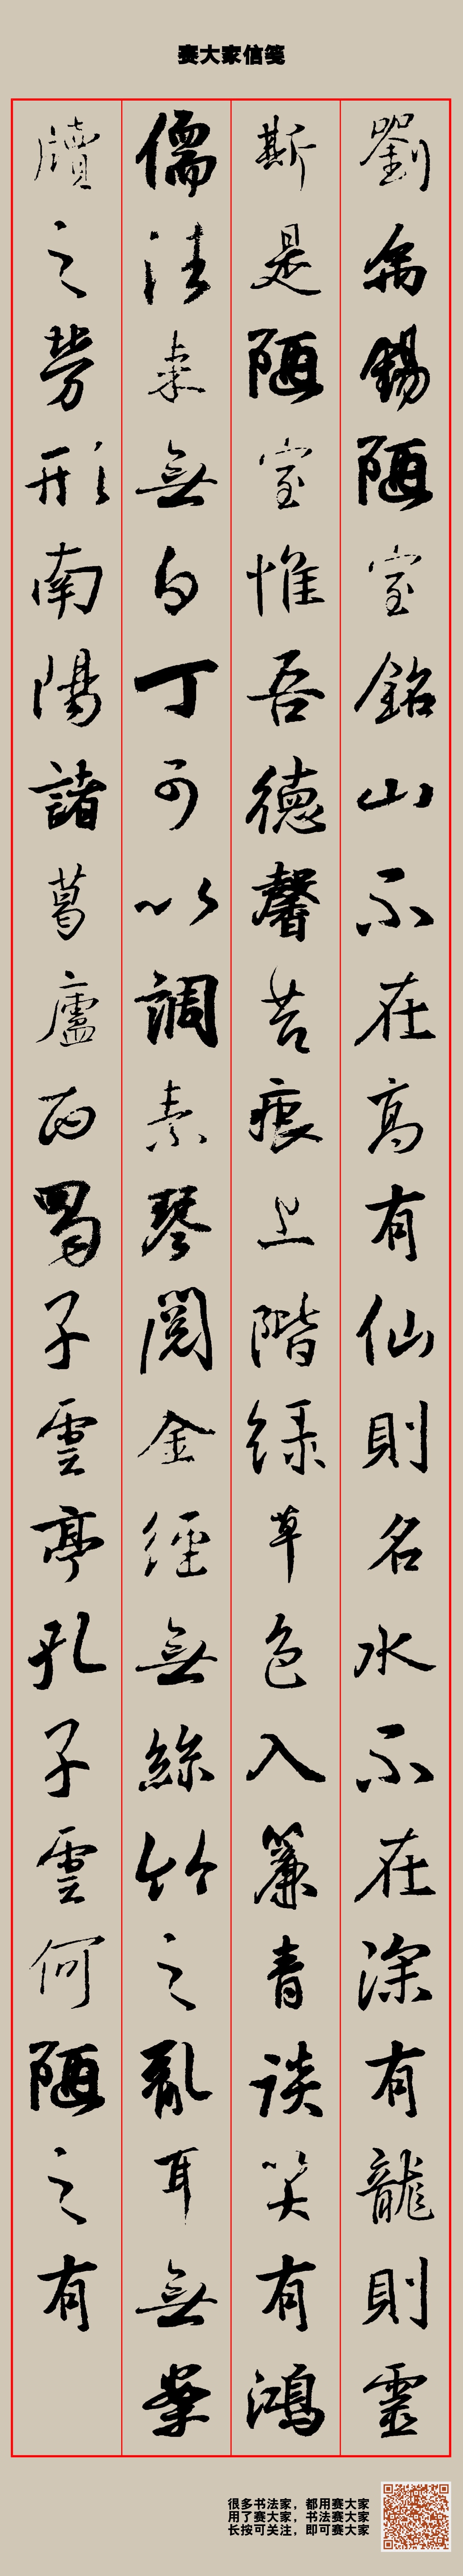 赛大家信笺
劉禹錫陋室銘山不在高有仙則名水不在深有龍則靈
斯是陋室惟吾德馨苔痕上階綠草色入簾青談笑有鴻
儒往來無白丁可以調素琴閱金經無絲竹之亂耳無案
牘之勞形南陽諸葛廬西蜀子雲亭孔子雲何陋之有
很多书法家，都用赛大家
用了赛大家，书法赛大家
长按可关注，即可赛大家